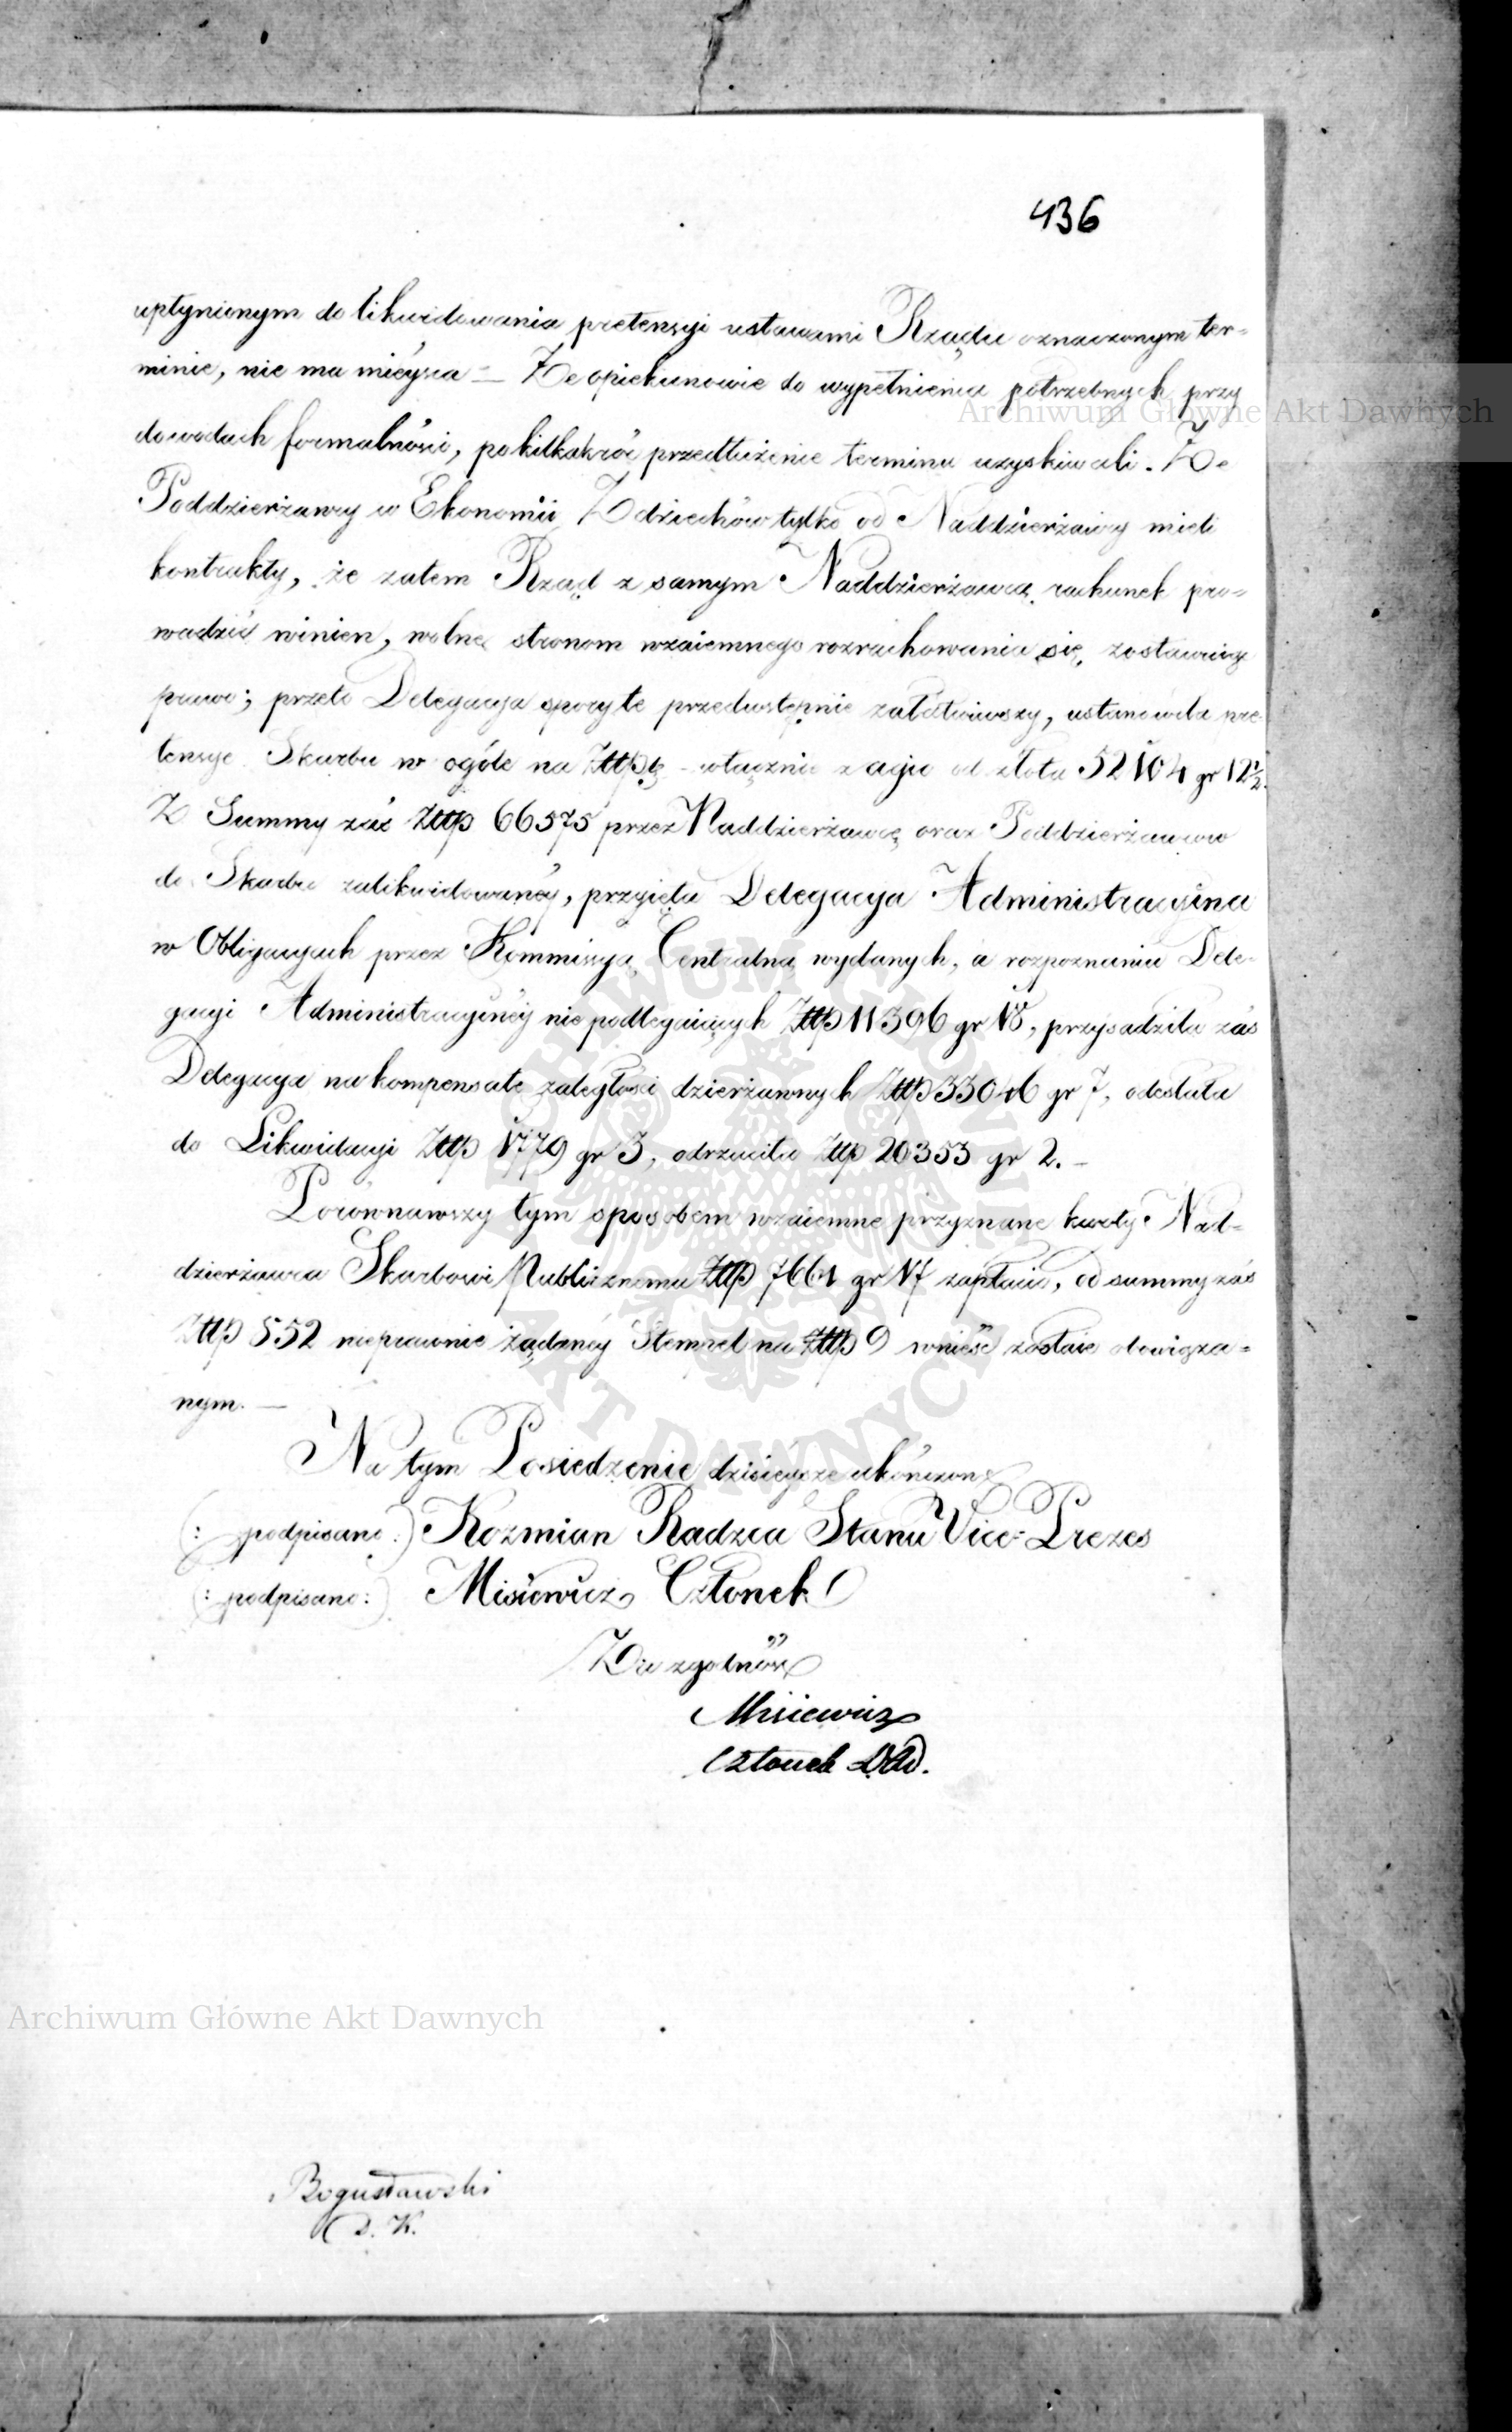 436
upłynionym do likwidowania pretensyi ustawami Rządu oznaczonym ter-
minie, nie ma mieysca — Że opiekunowie do wypełnienia potrzebnych przy
dowodach formalności, pokilkakroć przedłużenie terminu uzyskiwali. Że
Poddzierżawcy w Ekonomii Zdziechów tylko od Naddzierżawcy mieli
kontrakty, że zatem Rząd z samym Naddzierżawcą rachunek pro-
wadzić winien, wolne stronom wzaiemnego rozrachowania się, zostawuiąc
prawo; przeto Delegacya spory te przedwstępnie załatwiwszy, ustanowiła pre-
tensye Skarbu w ogóle na Złtp. włącznie z agio od złota 52104 gr 12½.
Z Summy zaś Złtp 66575 przez Naddzierżawcę oraz Poddzierżawców
do Skarbu zalikwidowaney, przyięła Delegacya Administracyina
w Obligacyach przez Kommisyą Centralną wydanych, a rozpoznaniu Dele-
gacyi Administracyiney nie podlegaiących Złtp 11396 gr 18, przysądziła zaś
Delegacya na kompensatę zaległości dzierżawnych Złtp 33046 gr 7, odesłała
do Likwidacyi Złtp 1779 gr 3, odrzuciła Złtp 20353 gr 2. –
Porównawszy tym sposobem wzaiemne przyznane kwoty Nad-
dzierżawca Skarbowi Publicznemu Złtp 7661 gr 17 zapłacić, od summy zaś
Złtp 552 nieprawnie żądaney Stempel na Złtp 9 wnieść zostaie obowiąza-
nym. —
Na tym Posiedzenie dzisieysze ukończono
(: podpisano :) Kozmian Radzca Stanu Vice-Prezes
(: podpisano :) Misiewicz Członek
Za zgodność
Misiewicz
Członek D.A.
Bogusławski
S. K.
Archiwum Główne Akt Dawnych
Archiwum Główne Akt Dawnych
ARCHIWUM GŁÓWNE
AKT DAWNYCH